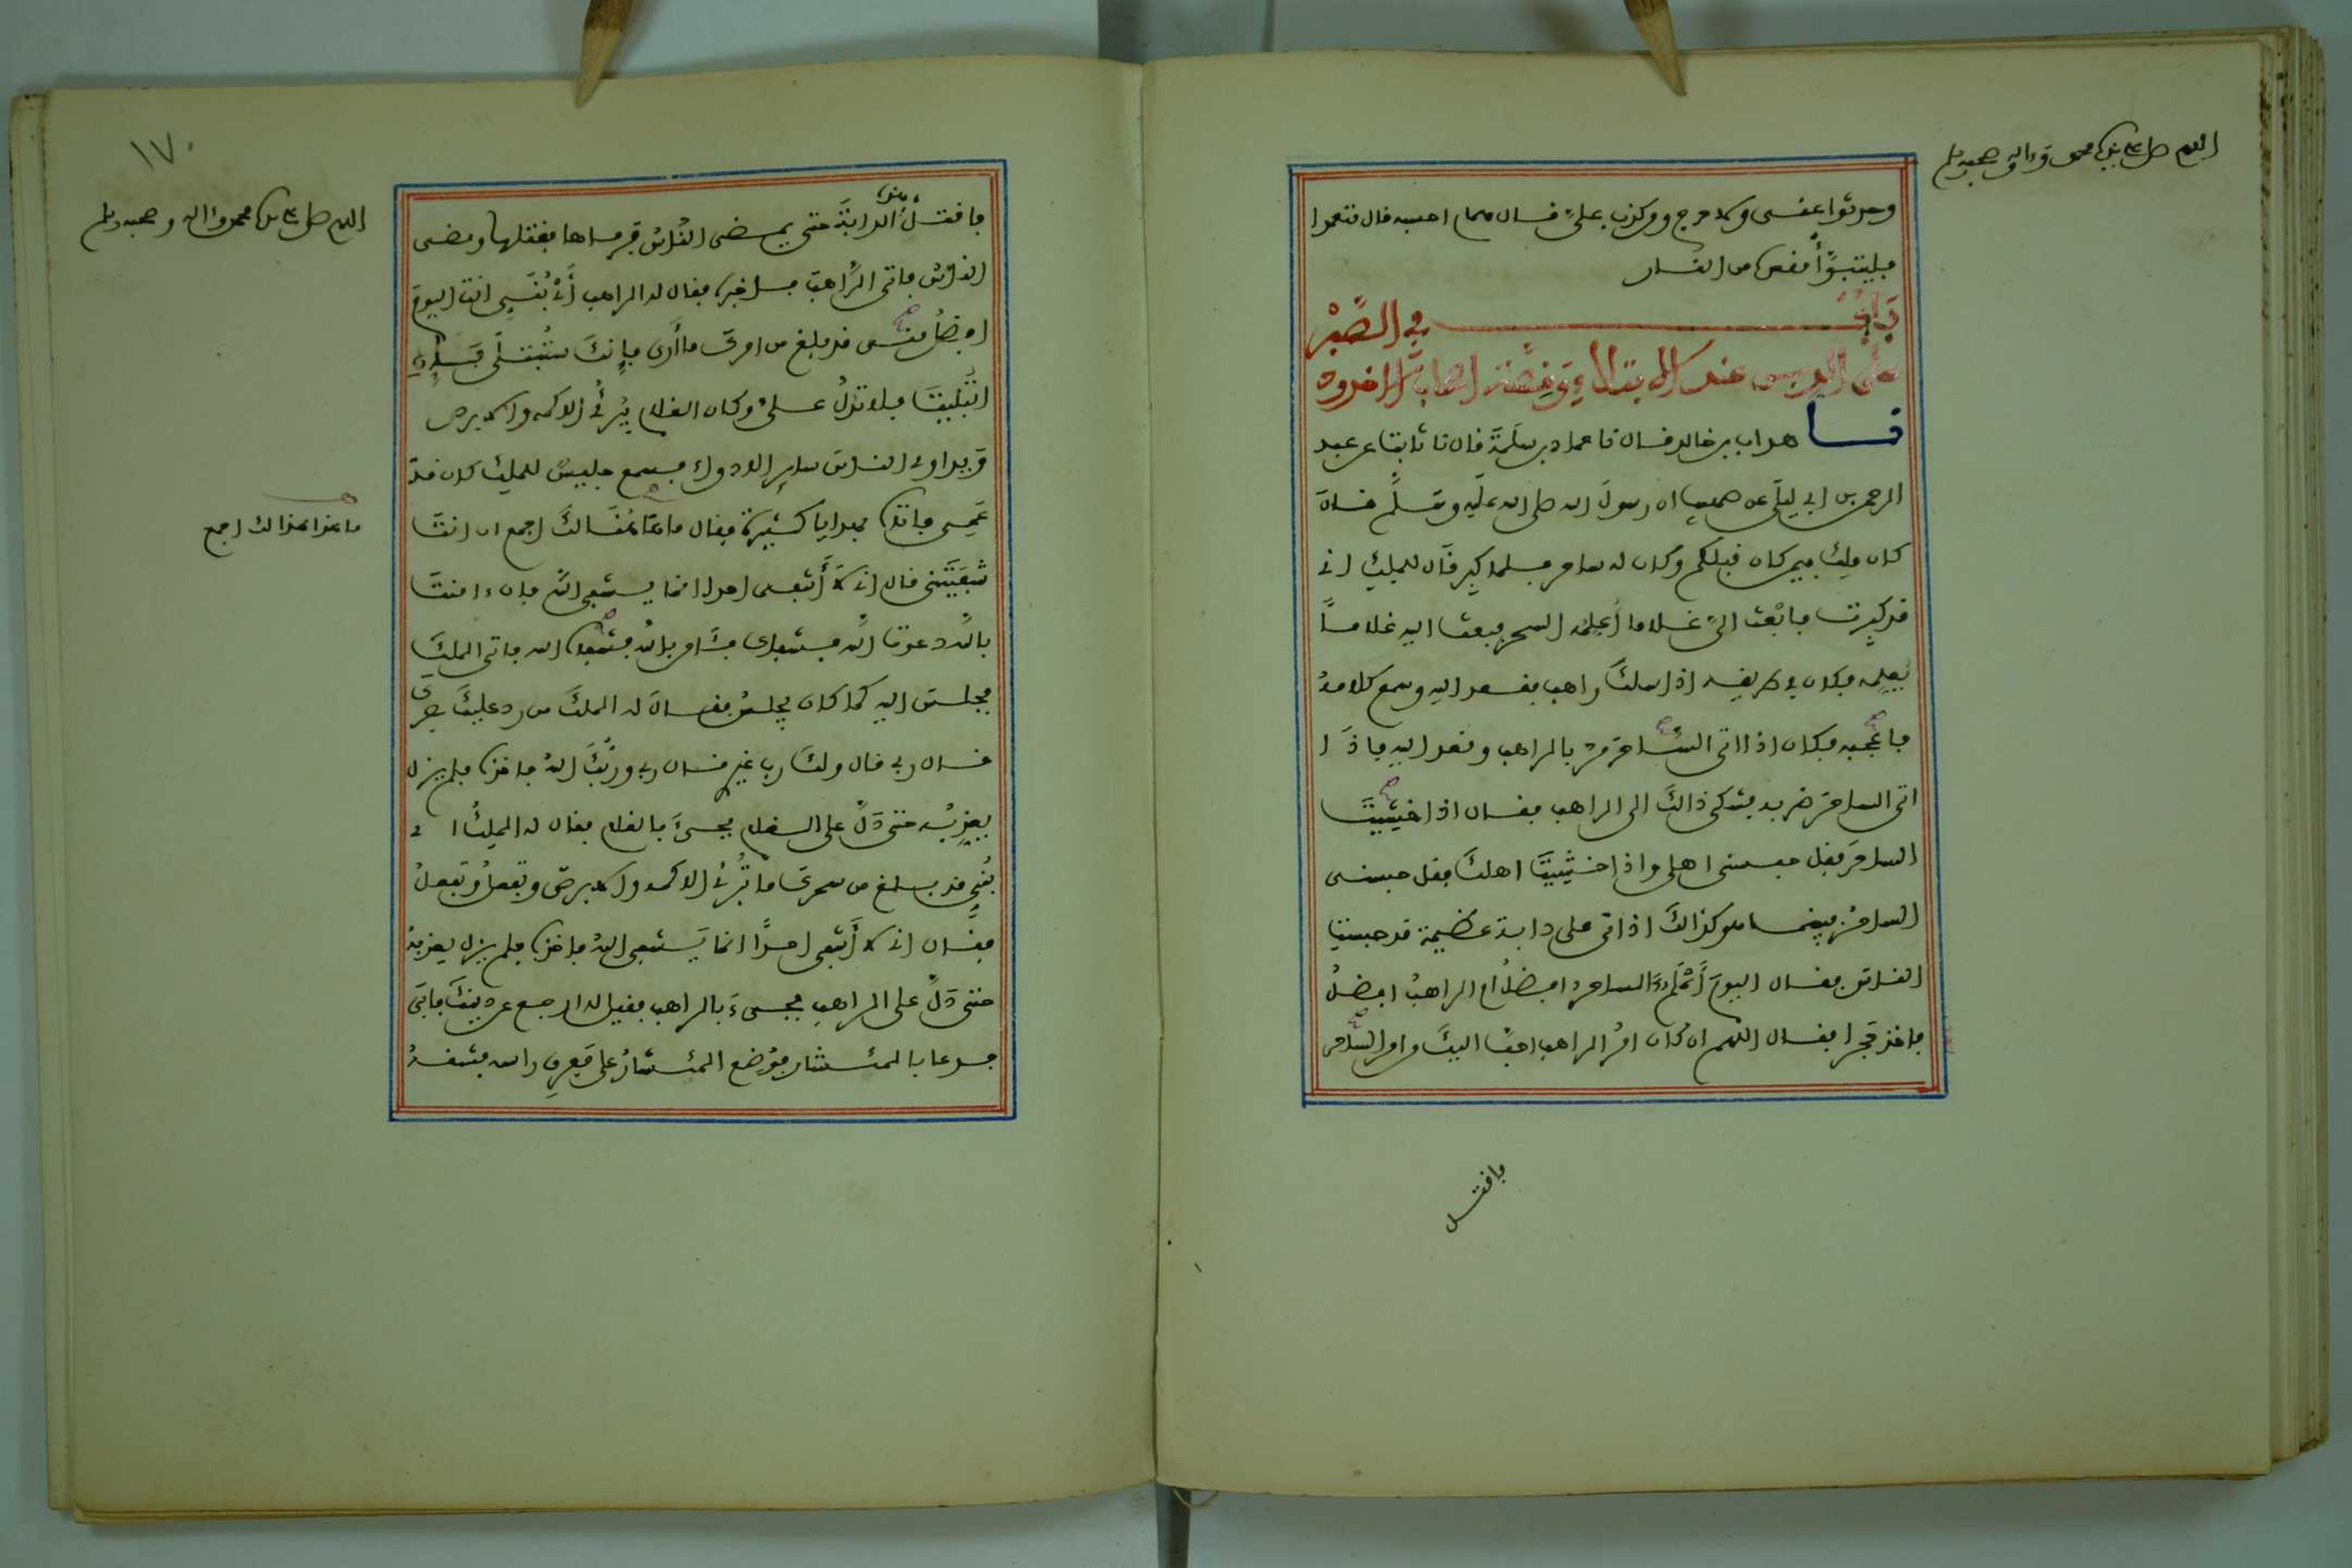 اللهم صل على نبينا محمد وءاله وصحبه وسلم
وحدثوا عني ولا حرج ومن كذب علىّ قال همام احسبه قال متعمدا
فليتبوّأ مقعده من النار
بَابٌ في الصَّبْر
على الدين عند الابتلاءِ وَقِصَّة اصحاب الاخدود
نا هداب بن خالد قال نا حماد بن سلَمَةَ قال نا ثابت عن عبد
الرحمن بن ابي ليلَى عن صهيب ان رسولَ الله صلى الله عليه وسَلَّم قال
كان ملِك فيمن كان قبلكم وكان له ساحر فلما كبِر قَال للملِكِ اني
قد كبِرت فابْعث الىّ غلاما اُعلِّمْه السحر فبعث اليه غلامًا
يُعلِّمه فكان في طريقه اذا سلكَ راهب فقعد اليه وسمع كلامهُ
فاعجبه فكان اذا اتى السَّاحرَ مرّ بالراهب وقعد اليه فاذَا
اتى الساحرَ ضربه فشكى ذالكَ الى الراهب فقال اذا خشِيتَ
الساحرَ فقل حبسنى اهلى واذا خشِيتَ اهلكَ فقل حبسنى
الساحرُ فبينما هو كذالكَ اذ اتى على دابة عظيمة قد حبستِ
الناسَ فقال اليومَ أَعْلَمُ ءَالساحرُ افضلُ ام الراهبُ افضلُ
فاخذ حَجرا فقال اللهم ان كان امرُ الراهب احبَّ اليكَ من امر الساحر
فاقتل
١٧٠
اللهم صل على نبينا محمد وءاله وصحبه وسلم
فاقتلْ هذه الدابَّةَ حتى يمضى النَّاسُ فرماها فقتلها ومضى
الناسُ فاتى الرَّاهبَ فاخبره فقال له الراهب أَىْ بُنَىِّ انت اليومَ
افضلُ منى قد بلغ من امركَ ما أَرى وإِنكَ ستُبْتلَى فإِنِ
ابْتُلِيتَ فلا تدُلَّ علىّ وكان الغلام يُبرِئُ الاكمه والابرص
ويداوى الناسَ سايِر الادواءِ فسمع جليسٌ للملِك كان قدْ
عَمِىَ فاتاه بهدايا كثيرة فقال ما هاهُنَا لكَ اجمع ان انتَ
ما هذا هذا لك اجمع
شَفَيْتَنى قال اني لَا أَشْفى احدا انما يشفى اللهُ فان ءامنتَ
بالله دعوتُ اللهَ فشفاك فَئامن بالله فشفاه الله فاتى الملكَ
فجلسَ اليه كما كان يجلسُ فقال له الملكُ من رد عليكَ بصرك
قال ربي قال ولكَ رب غيرى قال ربي وربُّكَ اللهُ فاخذه فلم يزل
يعذِّبُه حتى دَلَّ على الغلام فجىءَ بالغلام فقال له الملِكُ اى
بُنَىِّ قد بلغ من سحركَ ما تُبْرِئُ الاكمه والابرصَ وتفعلُ وتفعلُ
فقال اني لا أَشفى احدًا انما يَشفى اللهُ فاخذه فلم يزل يعذبهُ
حتى دَلَّ على الراهب فجىءَ بالراهب فقيل له ارجع عن دينكَ فابَى
فدعا بالمئشار فوُضع المئشارُ على مَفرِقِ راسه فشقهُ